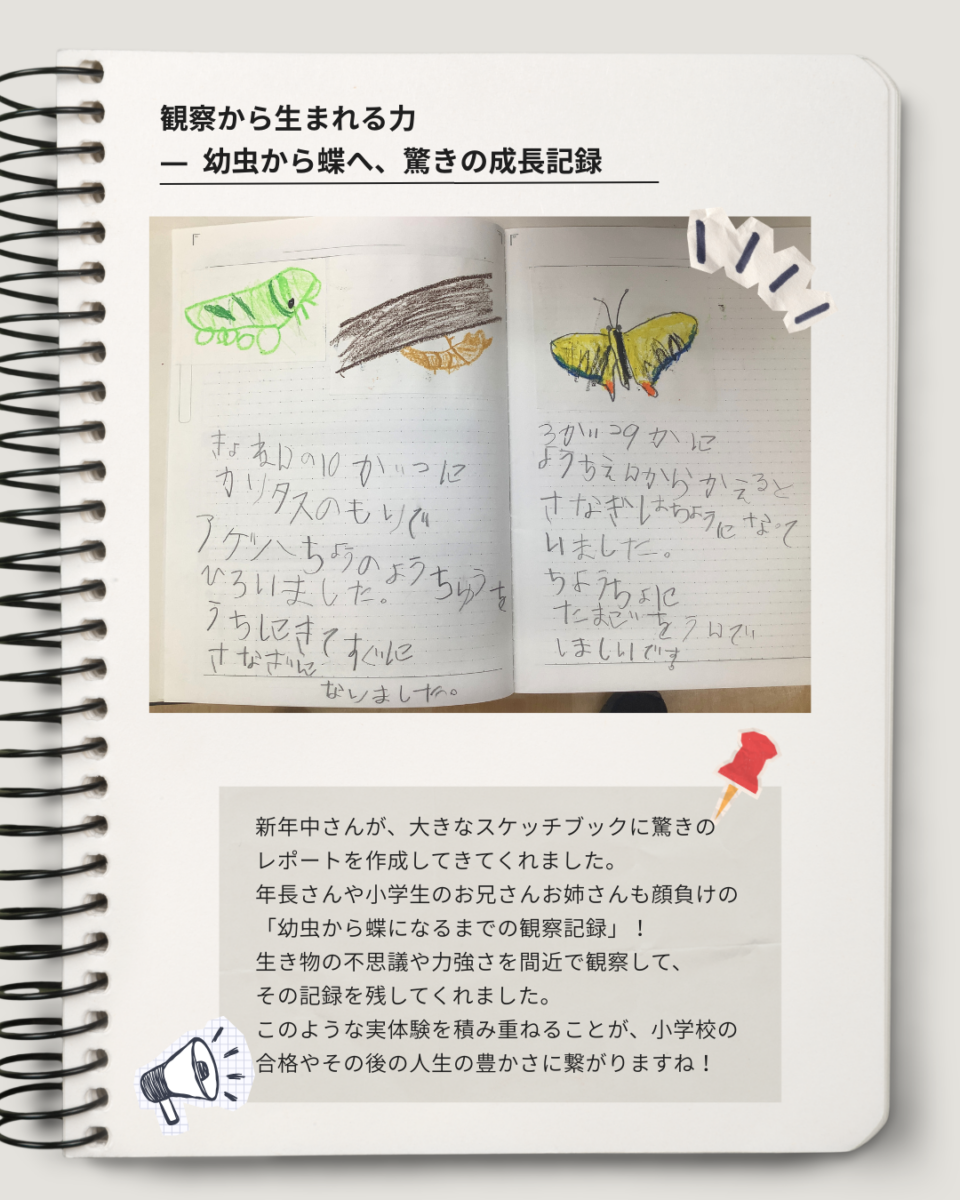 観察から生まれる力
― 幼虫から蝶へ、驚きの成長記録
きょねんの10がつに
カリタスのもりで
アゲハちょうのようちゅうを
ひろいました。
うちにきてすぐに
さなぎに
なりました。
3がつ9かに
ようちえんから かえると
さなぎはちょうに なって
いました。
ちょうちょに
たまごをうんで
ほしいです。
新年中さんが、大きなスケッチブックに驚きの
レポートを作成してきてくれました。
年長さんや小学生のお兄さんお姉さんも顔負けの
「幼虫から蝶になるまでの観察記録」！
生き物の不思議や力強さを間近で観察して、
その記録を残してくれました。
このような実体験を積み重ねることが、小学校の
合格やその後の人生の豊かさに繋がりますね！